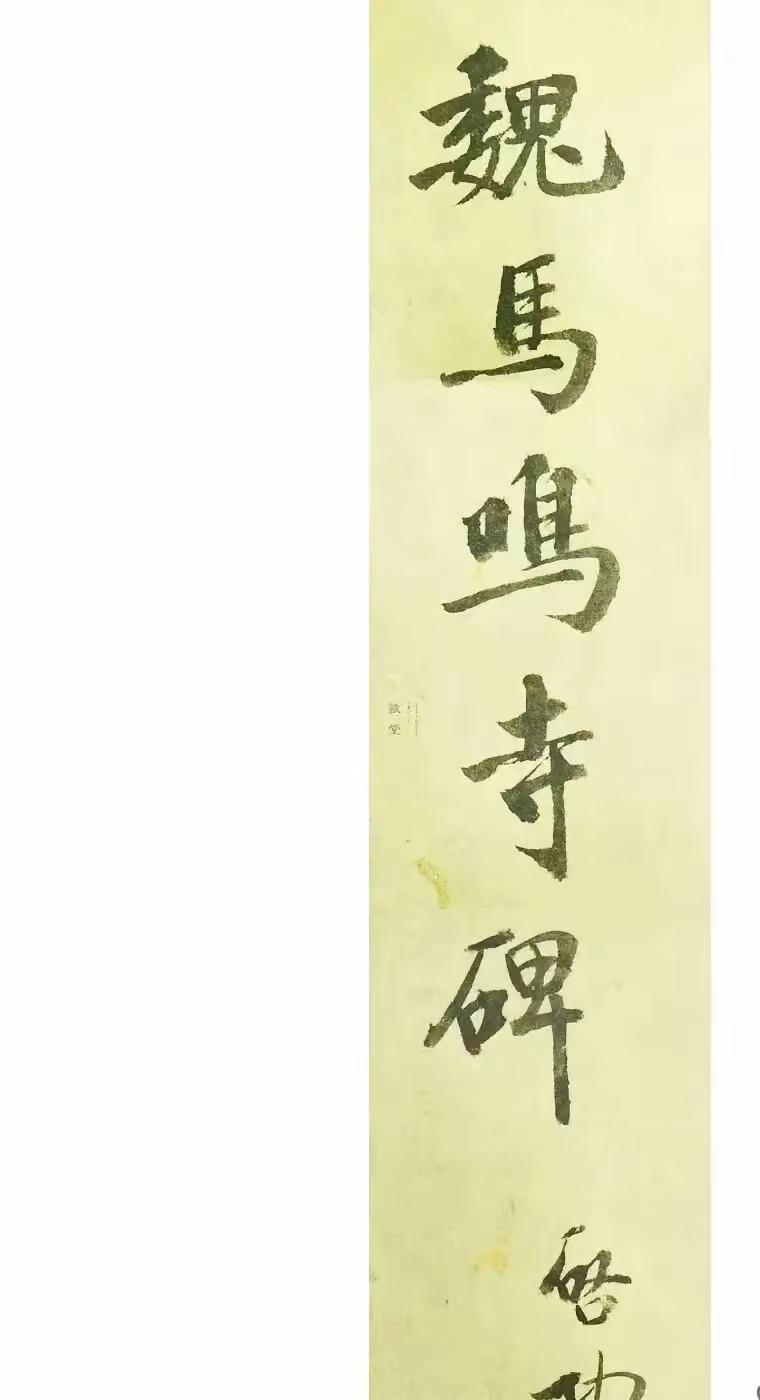 魏馬鳴寺碑
啓功